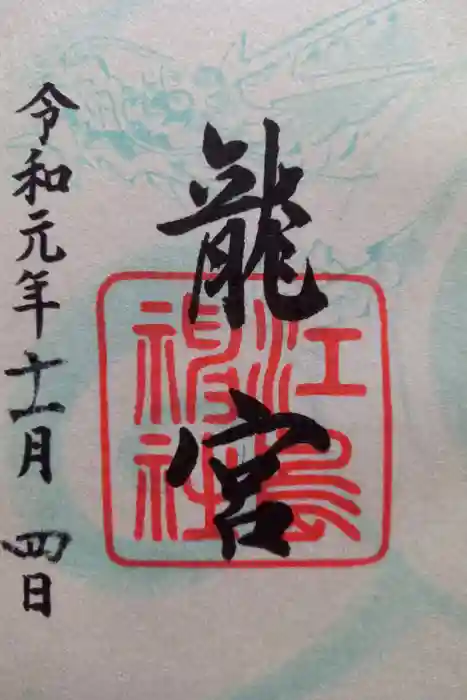 龍宮
江島
神社
令和元年十一月四日